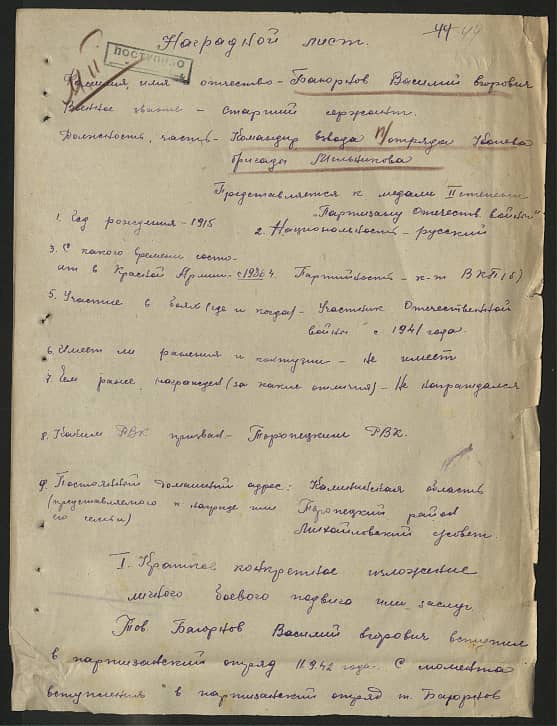 44
Наградной лист.
ПОСТУПИЛО
Фамилия, имя и отчество – Василий Егорович
Военное звание – старший сержант.
Должность, часть – Командир взвода п/отряда
бригады Мельникова
Представляется к медали II степени
"Партизану Отечеств войны"
1. Год рождения – 1915 2. Национальность – русский
3. С какого времени состо-
ит в Красной Армии – с 1936 4. Партийность – к-т ВКП(б)
5. Участие в боях (где и когда) – Участник Отечественной
войны с 1941 года.
6. Имеет ли ранения и контузии – не имеет
7. Чем ранее награжден (за какие отличия) – Не награждался
8. Каким РВК призван – Торопецким РВК.
9. Постоянный домашний адрес: Калининская область
(представляемого к награде или Торопецкий район
его семьи) Михайловский с/совет.
I. Краткое конкретное изложение
личного боевого подвига или заслуг
Тов. Василий Егорович вступил
в партизанский отряд 11.9.42 года. С момента
вступления в партизанский отряд т.